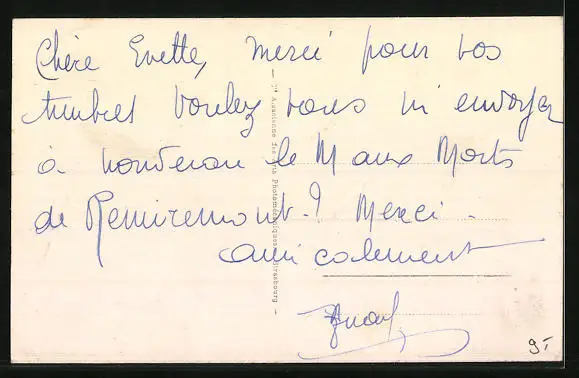 Chère Evette, Merci pour vos
timbres Voulez vous m'envoyer
à nouveau le M aux Morts
de Remiremont ? Merci.
amicalement
Photomécaniques Strasbourg
9.-